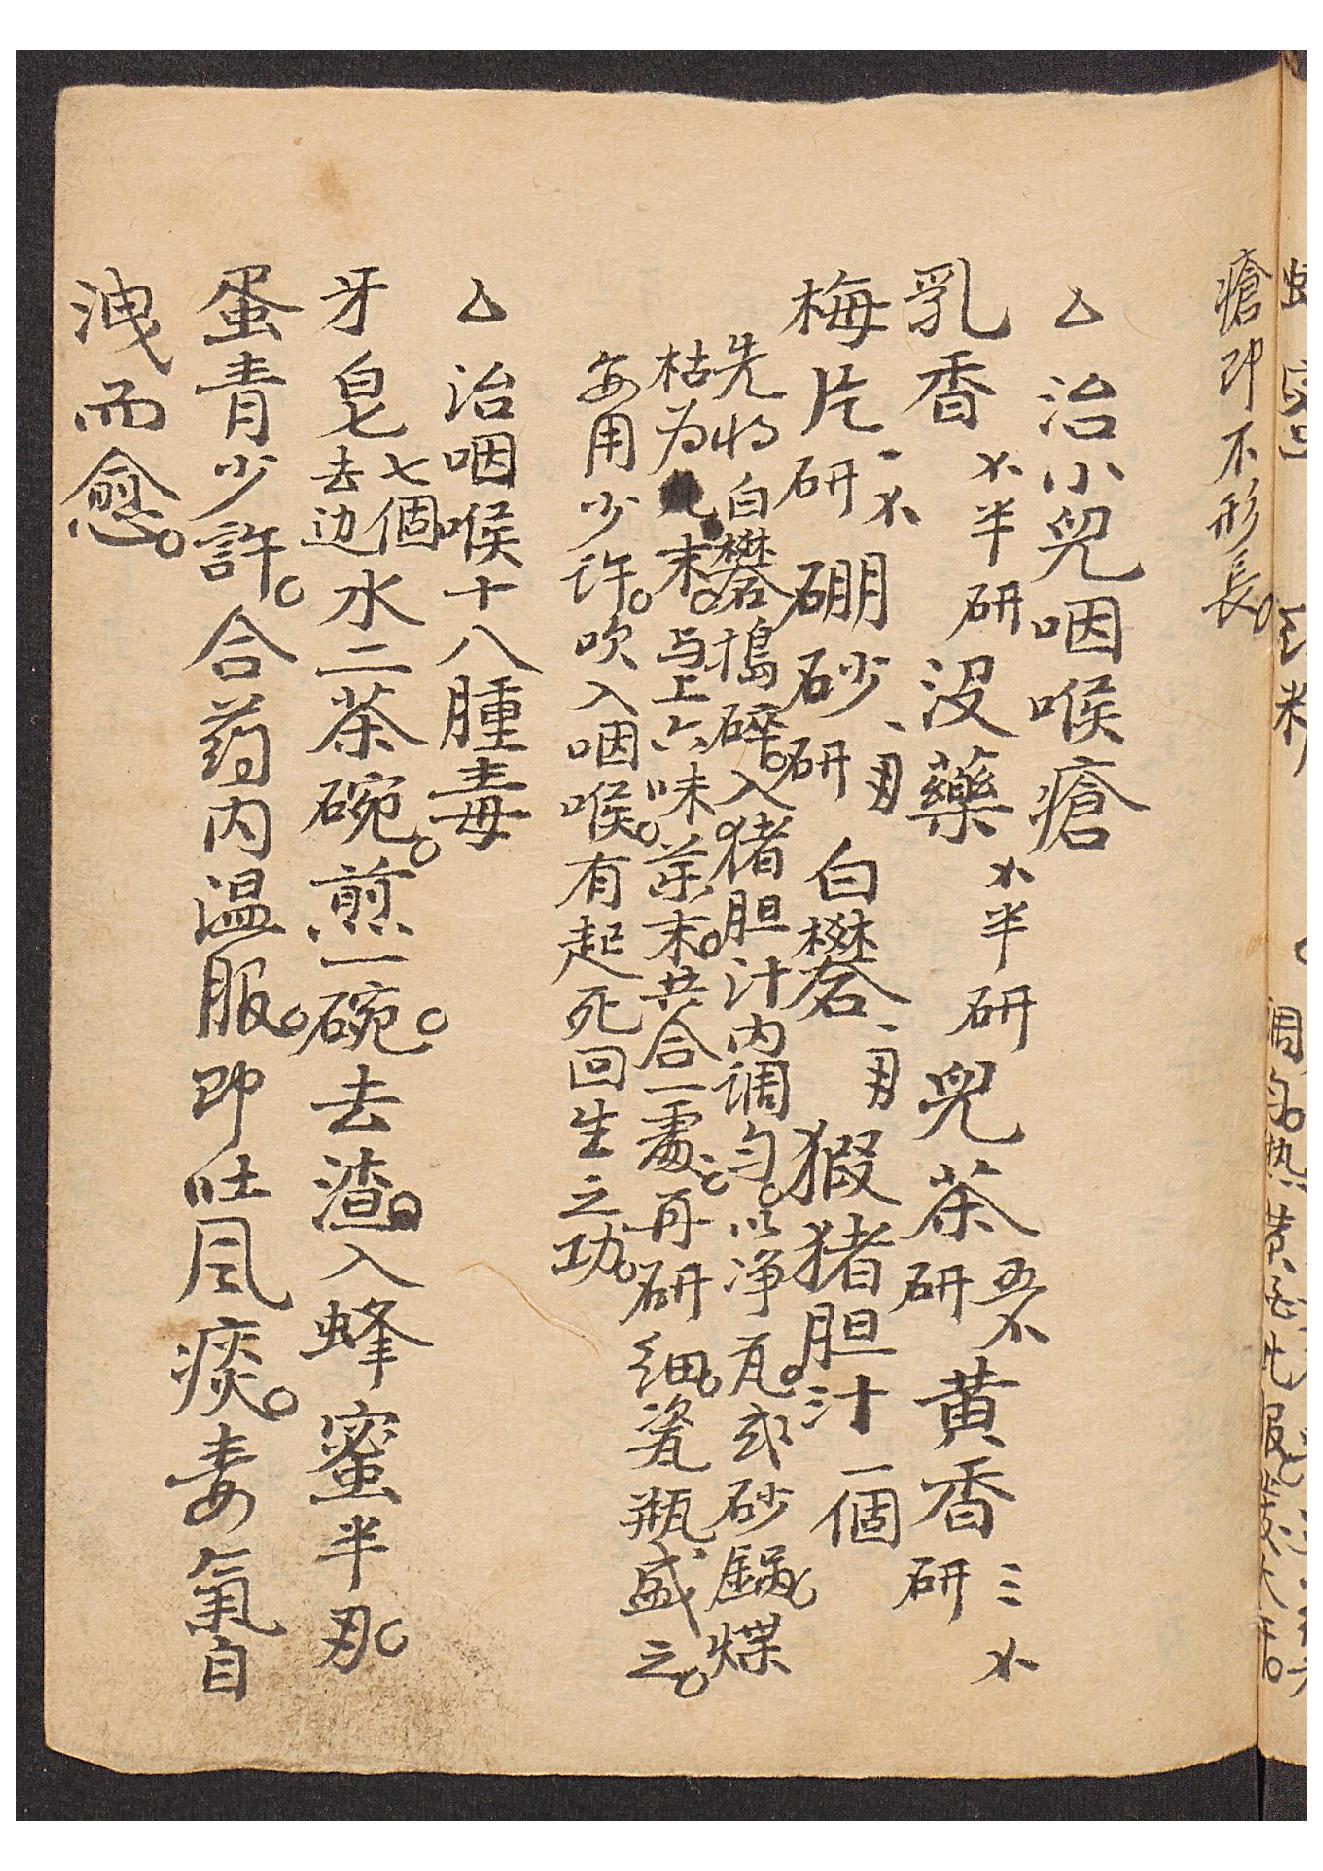 瘡即不形長。
治小兒咽喉瘡
乳香 半研 没藥 半研 兒茶 研 黄香 研 三
梅片 研 硼砂 研 白礬 猳猪胆汁一個
先将白礬搗碎。入猪胆汁内调匀。以净瓦。或砂鍋煤
枯为末。与上六味茶末。共合一處。再研细。瓷瓶盛之。
每用少许。吹入咽喉。有起死回生之功。
治咽喉十八腫毒
牙皂七個去边水二茶碗。煎一碗。去渣。入蜂蜜半刄。
蛋青少許。合药内温服。即吐风痰。毒氣自
洩而愈。